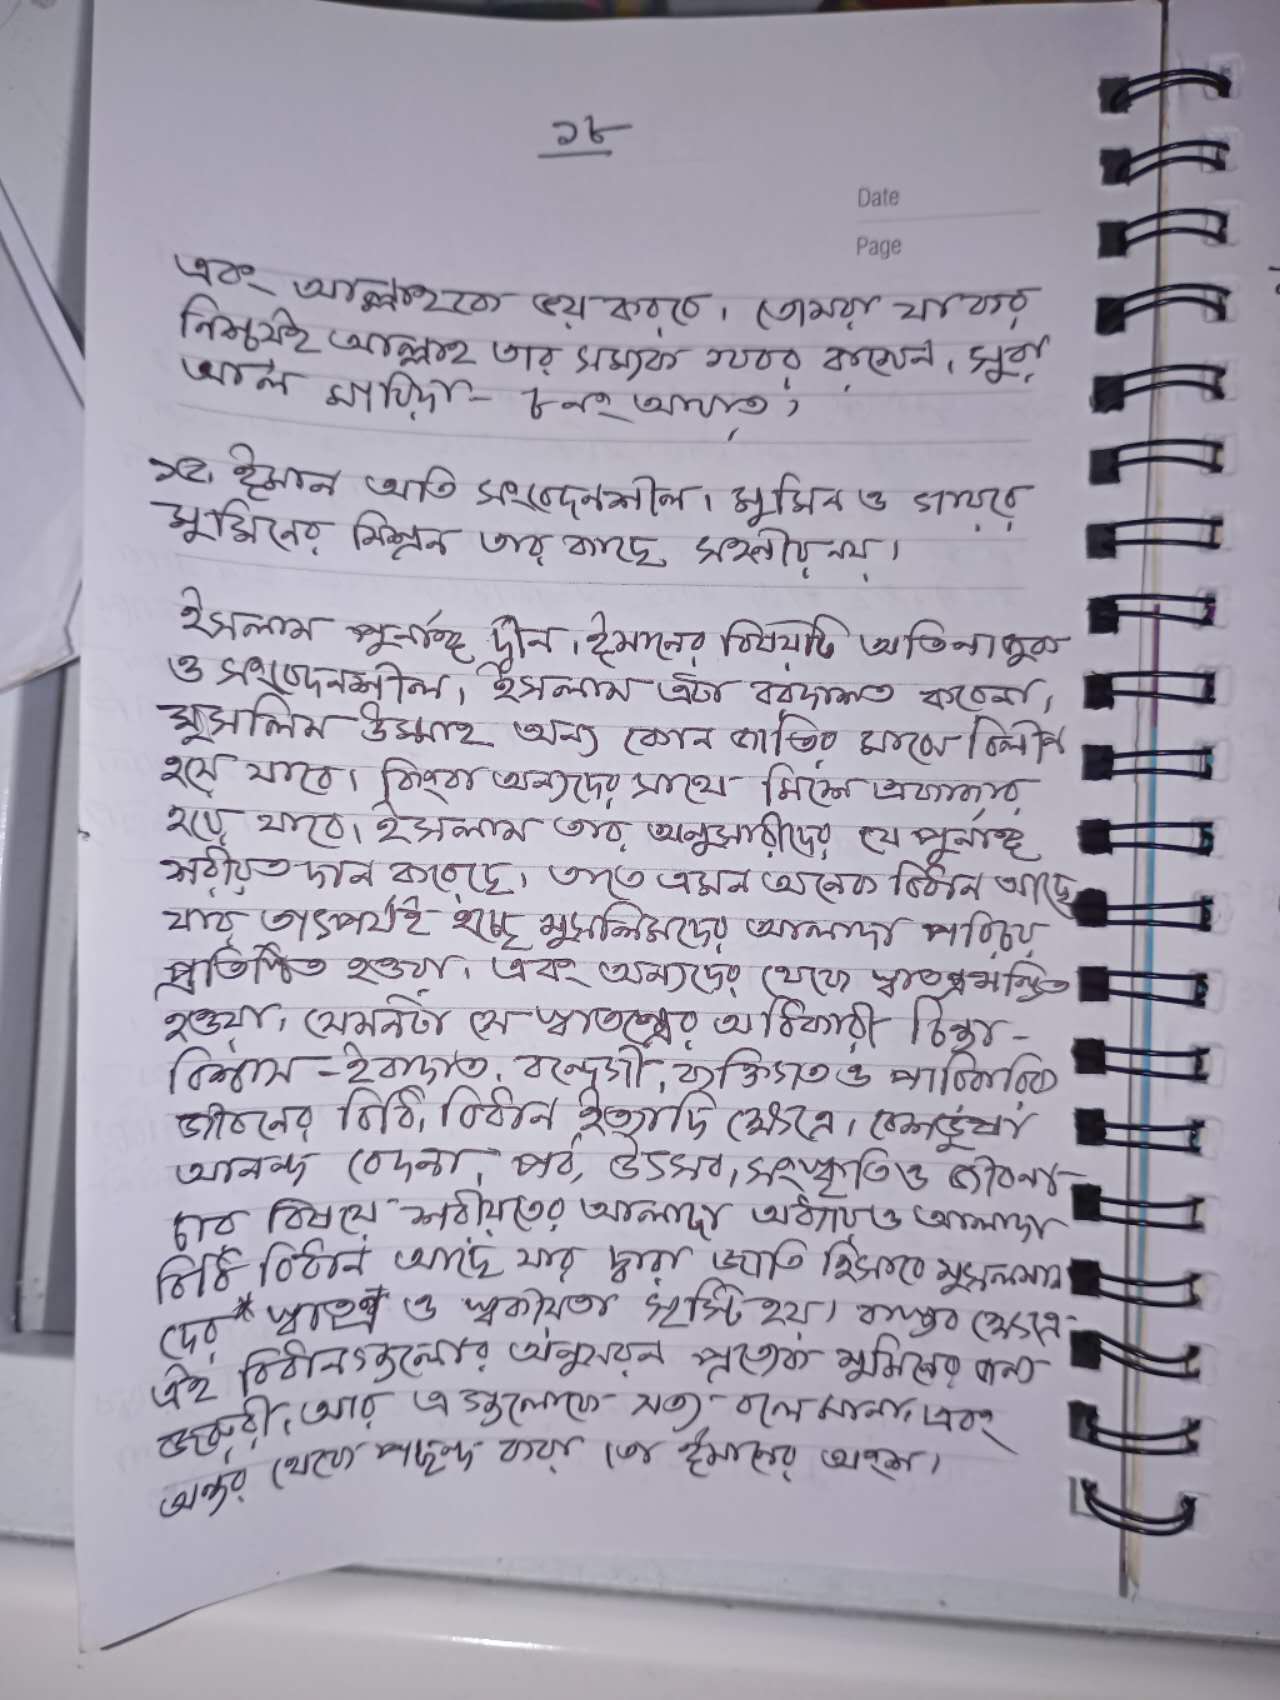 ১৮
Date
Page
এবং আল্লাহকে ভয় করবে। তোমরা যা কর
নিশ্চয়ই আল্লাহ তার সম্যক খবর রাখেন। সুরা
আল মায়িদা - ৮ নং আয়াত,
ঈমান অতি সংবেদনশীল। মুমিন ও গায়রে
মুমিনের মিশ্রন তার কাছে সহনীয় নয়।
ইসলাম পূর্নাঙ্গ দ্বীন। ঈমানের বিষয়টি অতি নাজুক
ও সংবেদনশীল। ইসলাম এটা বরদাশত করেনা।
মুসলিম উম্মাহ অন্য কোন জাতির মাঝে বিলীন
হয়ে যাবে। কিংবা অন্যদের সাথে মিশে একাকার
হয়ে যাবে। ইসলাম তার অনুসারীদের যে পূর্নাঙ্গ
শরীয়ত দান করেছে। তাতে এমন অনেক বিধান আছে
যার তাৎপর্যই হচ্ছে মুসলিমদের আলাদা পরিচয়
প্রতিষ্ঠিত হওয়া। এবং অন্যদের থেকে স্বাতন্ত্রমন্ডিত
হওয়া। যেমনটা সে স্বাতন্ত্রের অধিকারী চিন্তা -
বিশ্বাস - ইবাদাত, বন্দেগী, ব্যক্তিগত ও পারিবারিক
জীবনের বিধি, বিধান ইত্যাদি ক্ষেত্রে। বেশভুষা
আনন্দ বেদনা, পর্ব, উৎসব, সংস্কৃতি ও জীবনা-
চার বিষয়ে শরীয়তের আলাদা অধ্যায় ও আলাদা
বিধি বিধান আছে যার দ্বারা জাতি হিসাবে মুসলমান
দের * স্বাতন্ত্র ও স্বকীয়তা সৃস্টি হয়। বাস্তব ক্ষেত্রে
এই বিধানগুলোর অনুসরন প্রত্যেক মুমিনের জন্য
জরুরী। আর এ গুলোকে সত্য বলে মানা, এবং
অন্তর থেকে পছন্দ করা তো ঈমানের অংশ।